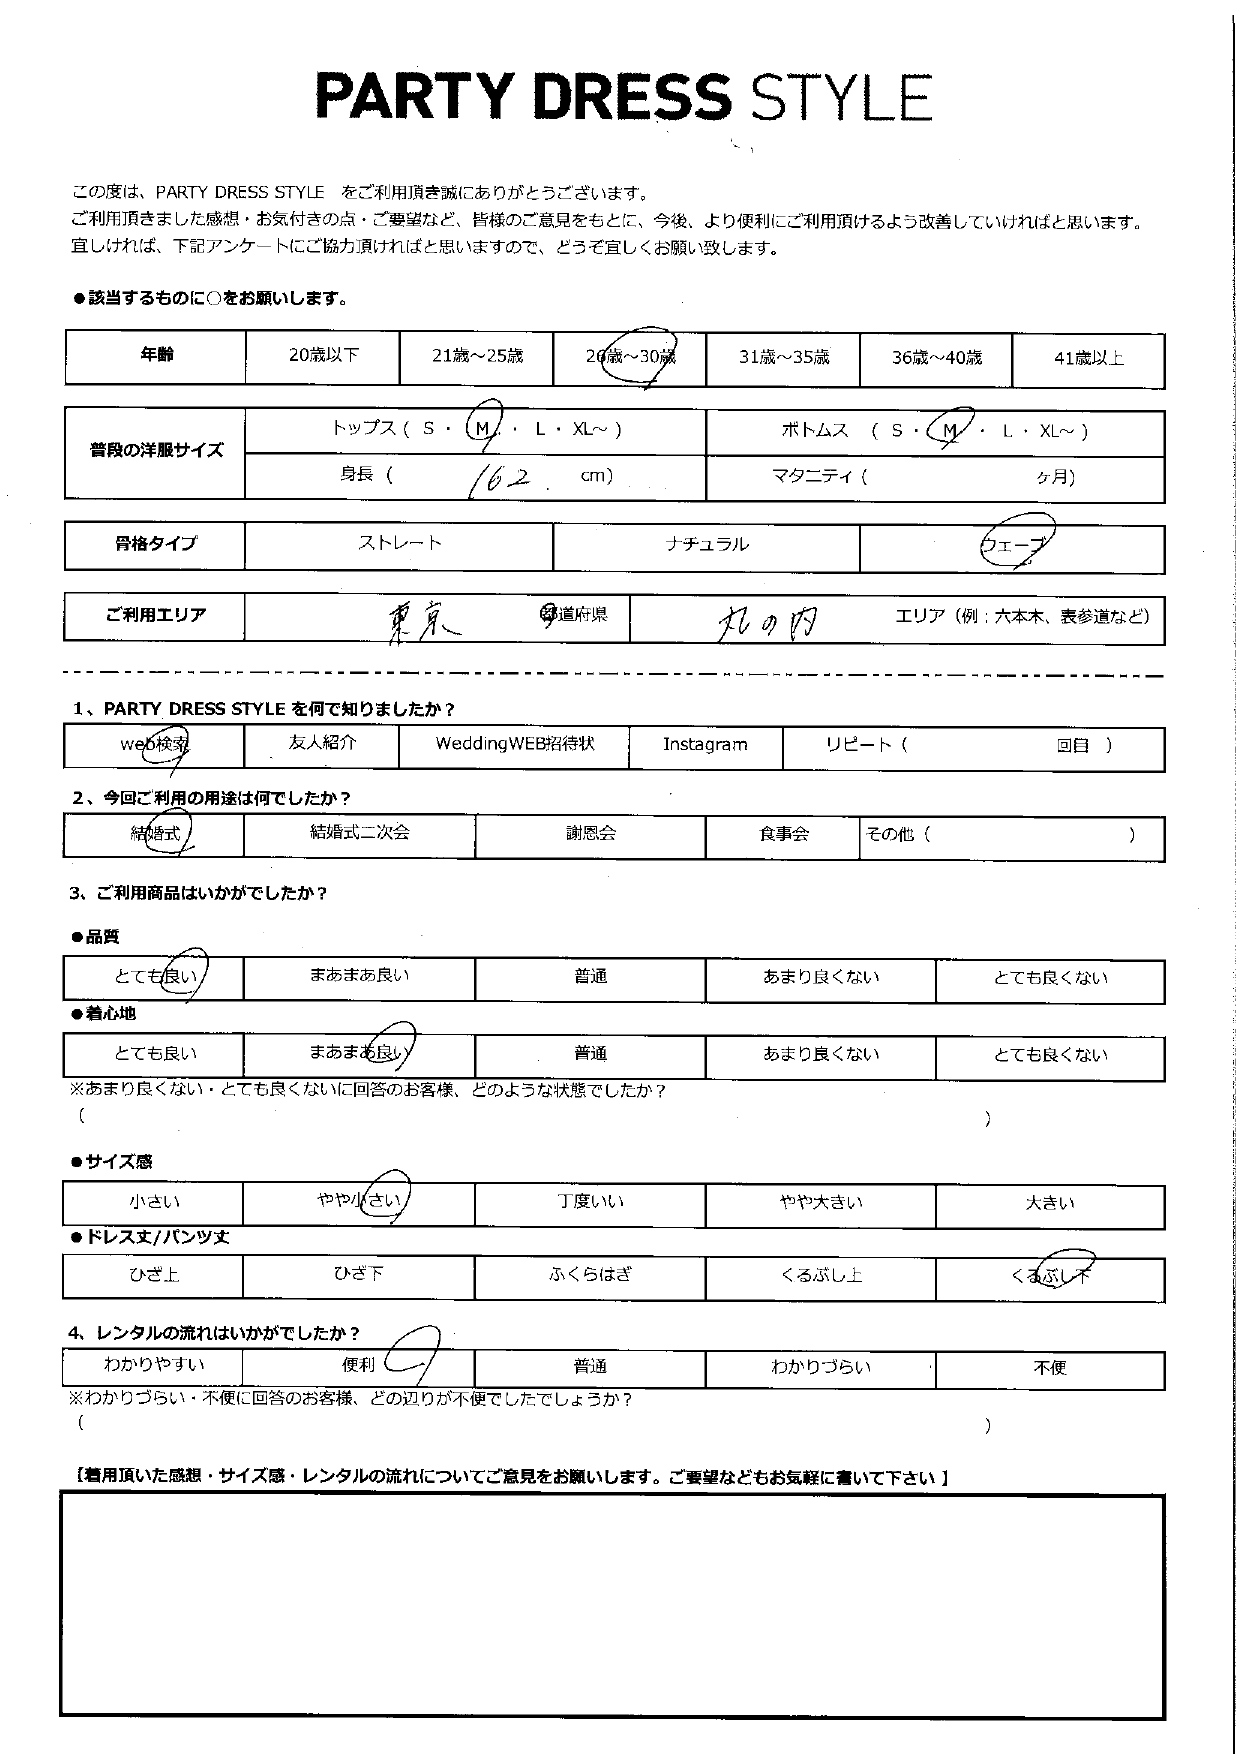 PARTY DRESS STYLE
この度は、PARTY DRESS STYLE をご利用頂き誠にありがとうございます。
ご利用頂きました感想・お気付きの点・ご要望など、皆様のご意見をもとに、今後、より便利にご利用頂けるよう改善していければと思います。
宜しければ、下記アンケートにご協力頂ければと思いますので、どうぞ宜しくお願い致します。
●該当するものに○をお願いします。
年齢 20歳以下 21歳～25歳 26歳～30歳 31歳～35歳 36歳～40歳 41歳以上
普段の洋服サイズ トップス（ S ・ M ・ L ・ XL～ ） ボトムス （ S ・ M ・ L ・ XL～ ）
身長（ 162 cm） マタニティ（ ヶ月）
骨格タイプ ストレート ナチュラル ウェーブ
ご利用エリア 東京 都道府県 丸の内 エリア（例：六本木、表参道など）
1、PARTY DRESS STYLE を何で知りましたか？
web検索 友人紹介 WeddingWEB招待状 Instagram リピート（ 回目 ）
2、今回ご利用の用途は何でしたか？
結婚式 結婚式二次会 謝恩会 食事会 その他（ ）
3、ご利用商品はいかがでしたか？
●品質
とても良い まあまあ良い 普通 あまり良くない とても良くない
●着心地
とても良い まあまあ良い 普通 あまり良くない とても良くない
※あまり良くない・とても良くないに回答のお客様、どのような状態でしたか？
（ ）
●サイズ感
小さい やや小さい 丁度いい やや大きい 大きい
●ドレス丈/パンツ丈
ひざ上 ひざ下 ふくらはぎ くるぶし上 くるぶし下
4、レンタルの流れはいかがでしたか？
わかりやすい 便利 普通 わかりづらい 不便
※わかりづらい・不便に回答のお客様、どの辺りが不便でしたでしょうか？
（ ）
【着用頂いた感想・サイズ感・レンタルの流れについてご意見をお願いします。ご要望などもお気軽に書いて下さい 】